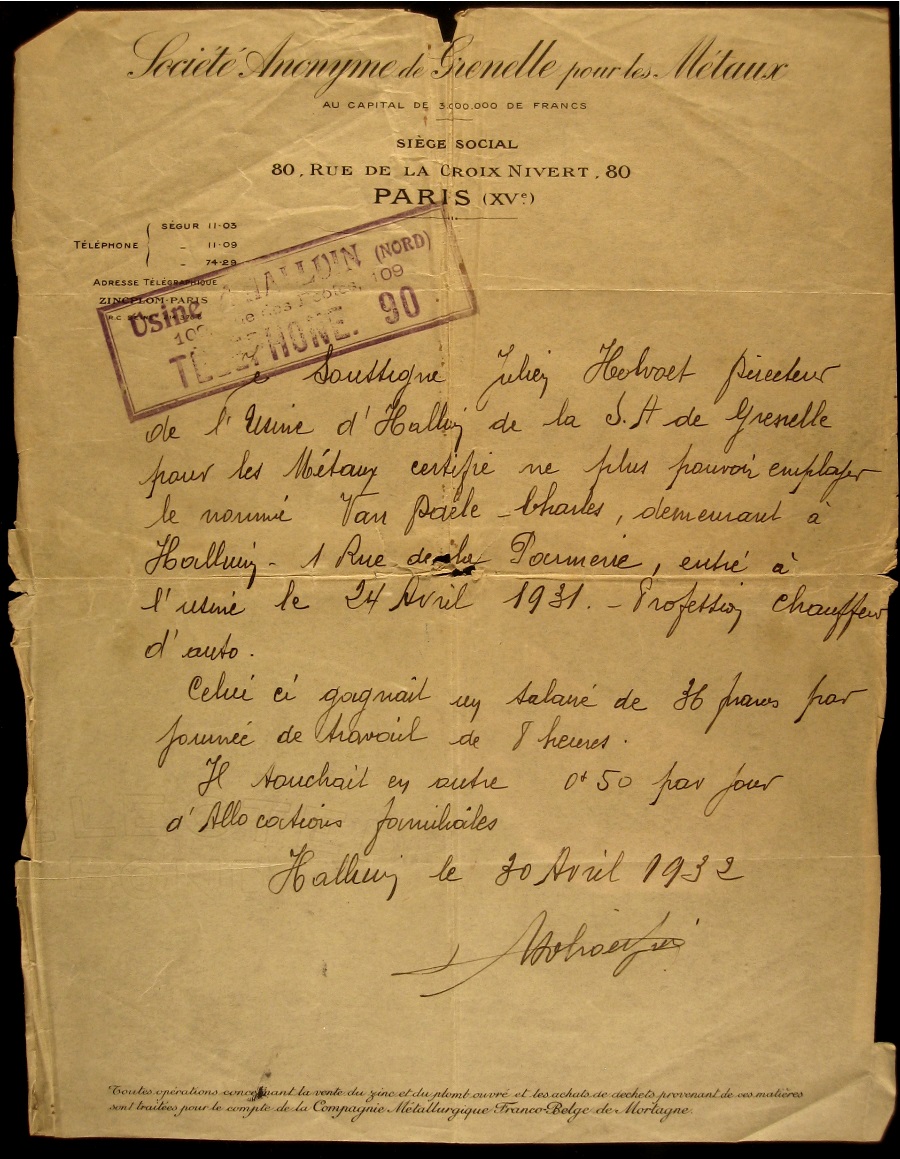 Société Anonyme de Grenelle pour les Métaux
AU CAPITAL DE 3.000.000 DE FRANCS
SIÈGE SOCIAL
80, RUE DE LA CROIX NIVERT, 80
PARIS (XVe)
TÉLÉPHONE
SÉGUR 11-03
„ 11-09
„ 74-29
ADRESSE TÉLÉGRAPHIQUE
ZINCPLOM-PARIS
Usine HALLUIN (NORD)
109, 109
TÉLÉPHONE. 90
Soussigné Julien Holvoet Directeur
de l'Usine d'Halluin de la S.A de Grenelle
pour les Métaux certifie ne plus pouvoir employer
le nommé Van Daële Charles, demeurant à
Halluin - 1 Rue de la, entré à
l'usine le 24 Avril 1931. - Profession chauffeur
d'auto.
Celui ci gagnait un salaire de 36 francs par
journée de travail de 8 heures.
Il touchait en outre 0f50 par jour
d'Allocations familiales
Halluin le 30 Avril 1932
Toutes opérations concernant la vente du zinc et du plomb ouvré et les achats de dechets provenant de ces matières
sont traitées pour le compte de la Compagnie Métallurgique Franco-Belge de Mortagne.